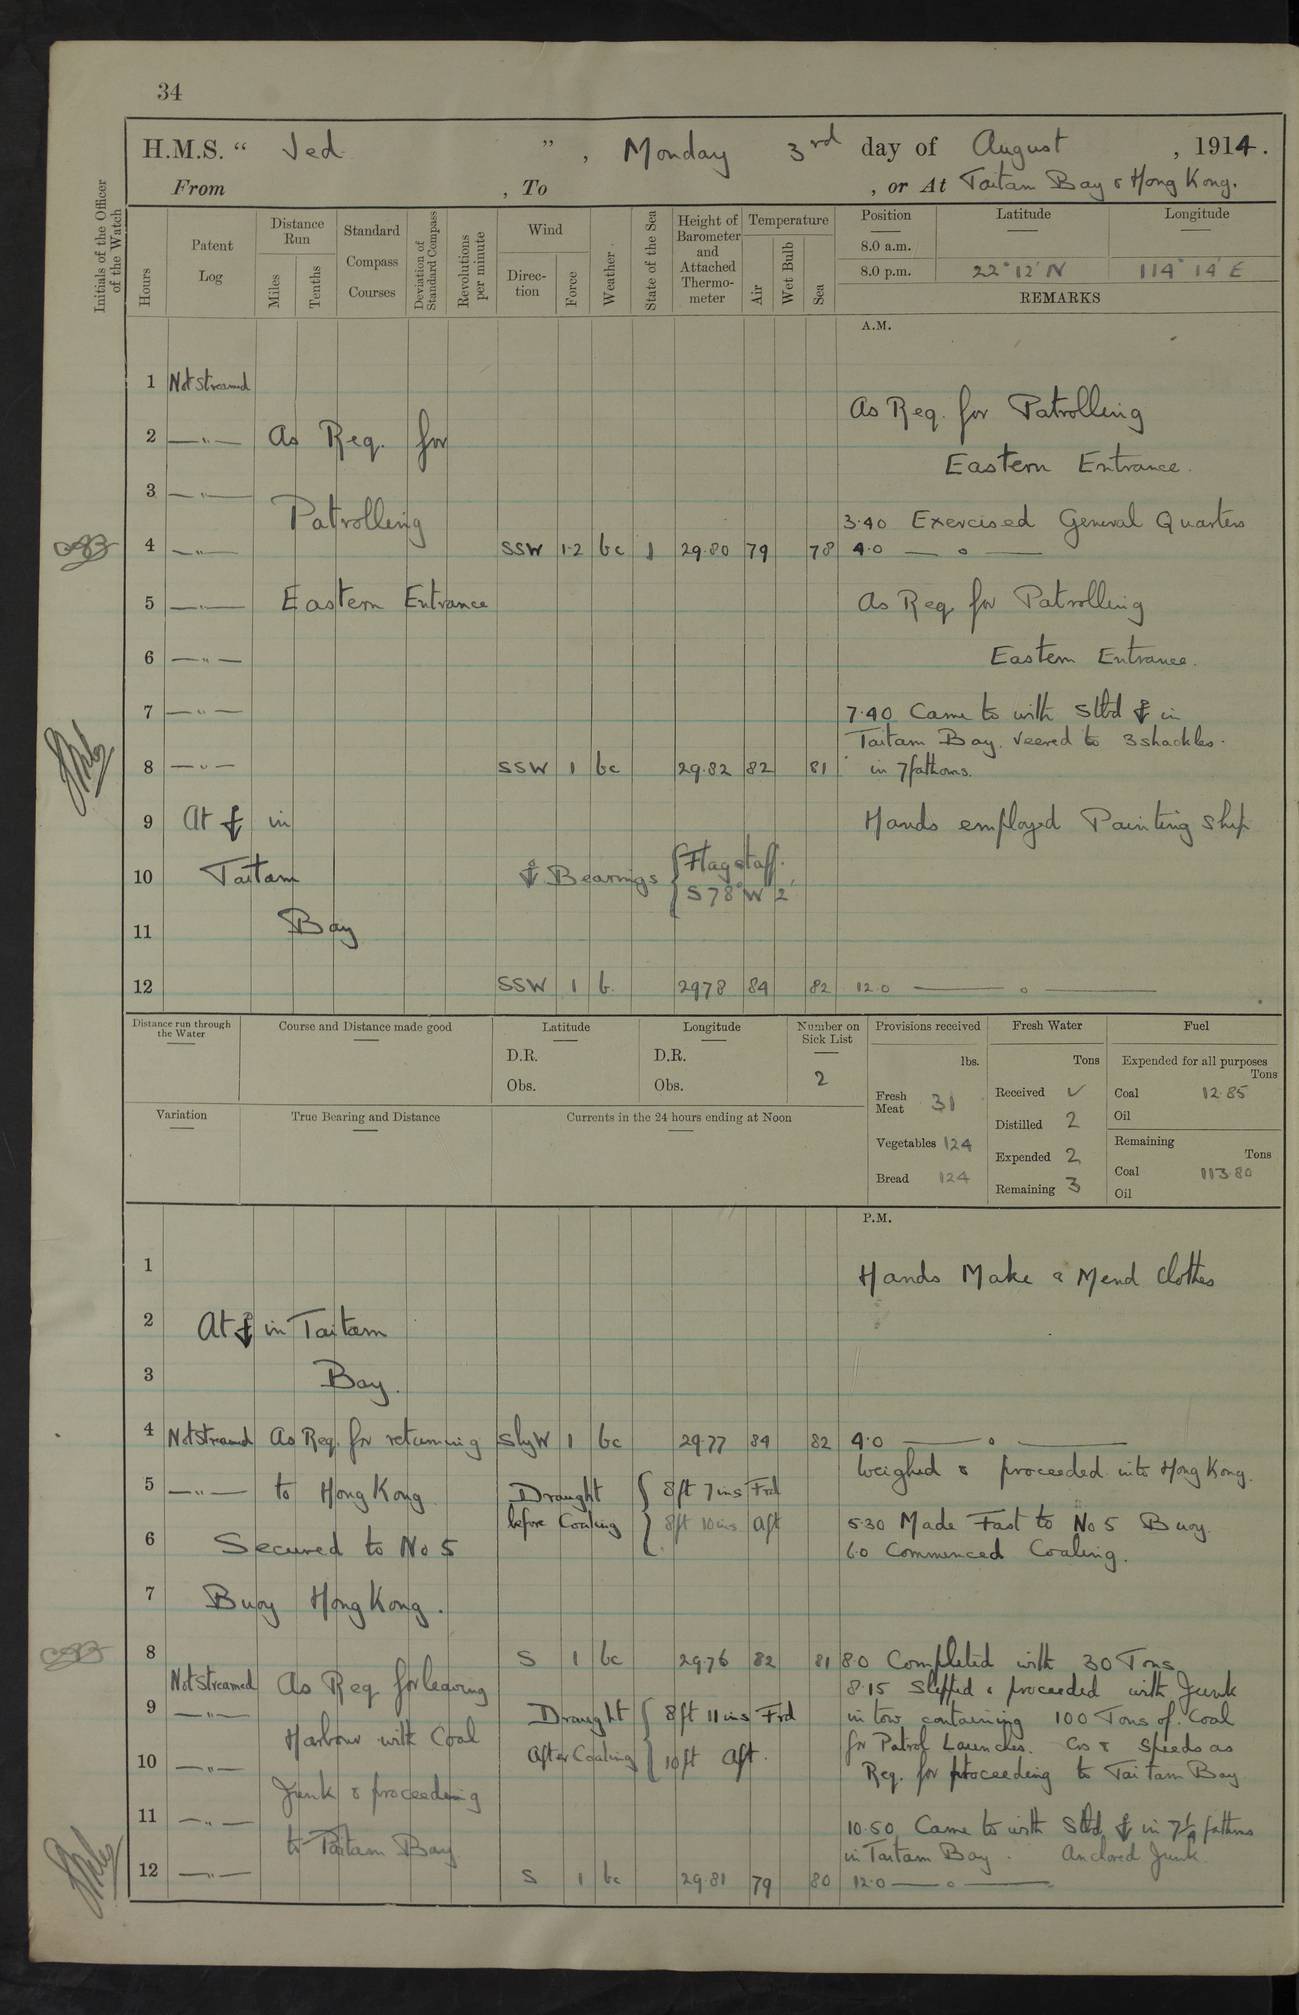 34
H.M.S. “ Jed ” , Monday 3rd day of August , 1914.
From , To , or At Taitam Bay & Hong Kong.
Initials of the Officer of the Watch
Hours
Patent Log
Distance Run
Miles
Tenths
Standard Compass Courses
Deviation of Standard Compass
Revolutions per minute
Wind
Direction
Force
Weather
State of the Sea
Height of Barometer and Attached Thermometer
Temperature
Air
Wet Bulb
Sea
Position Latitude Longitude
8.0 a.m.
8.0 p.m. 22° 12' N 114° 14' E
REMARKS
A.M.
1 Not streamed
As Req. for Patrolling
2 —"— As Req. for
Eastern Entrance.
3 —"—
Patrolling 3.40 Exercised General Quarters
4 —"— SSW 1.2 bc 1 29.80 79 78 4.0 — o —
5 —"— Eastern Entrance As Req. for Patrolling
6 —"— Eastern Entrance.
7 —"— 7.40 Came to with Stbd ⚓ in
Taitam Bay. Veered to 3 shackles.
8 —"— SSW 1 bc 29.82 82 81 in 7 fathoms.
9 At ⚓ in Hands employed Painting Ship
10 Taitam ⚓ Bearings { Flagstaff.
S 78° W 2'
11 Bay
12 SSW 1 b. 2978 84 82 12.0 — o —
Distance run through the Water
Course and Distance made good
Latitude
D.R.
Obs.
Longitude
D.R.
Obs.
Number on Sick List
2
Provisions received
lbs.
Fresh Meat 31
Vegetables 124
Bread 124
Fresh Water
Tons
Received ✓
Distilled 2
Expended 2
Remaining 3
Fuel
Expended for all purposes
Tons
Coal 12.85
Oil
Remaining
Tons
Coal 113.80
Oil
Variation
True Bearing and Distance
Currents in the 24 hours ending at Noon
P.M.
1 Hands Make & Mend Clothes
2 At ⚓ in Taitam
3 Bay.
4 Not Streamed As Req. for returning SbyW 1 bc 29.77 84 82 4.0 — o —
Weighed & proceeded into Hong Kong.
5 —"— to Hong Kong Draught before Coaling { 8ft 7ins Frd
8ft 10ins Aft 5.30 Made Fast to No 5 Buoy.
6 Secured to No 5 6.0 Commenced Coaling.
7 Buoy Hong Kong.
8 S 1 bc 29.76 82 81 8.0 Completed with 30 Tons
Not Streamed As Req for leaving 8.15 Slipped & proceeded with Junk
9 —"— Draught After Coaling { 8ft 11ins Frd in tow containing 100 Tons of Coal
Harbour with Coal for Patrol Launches. Cos & Speeds as
10 —"— 10ft Aft. Req. for proceeding to Tai tam Bay
Junk & proceeding
11 —"— 10.50 Came to with Stbd ⚓ in 7½ fathoms
to Taitam Bay in Taitam Bay. Anchored Junk.
12 —"— S 1 bc 29.81 79 80 12.0 — o —